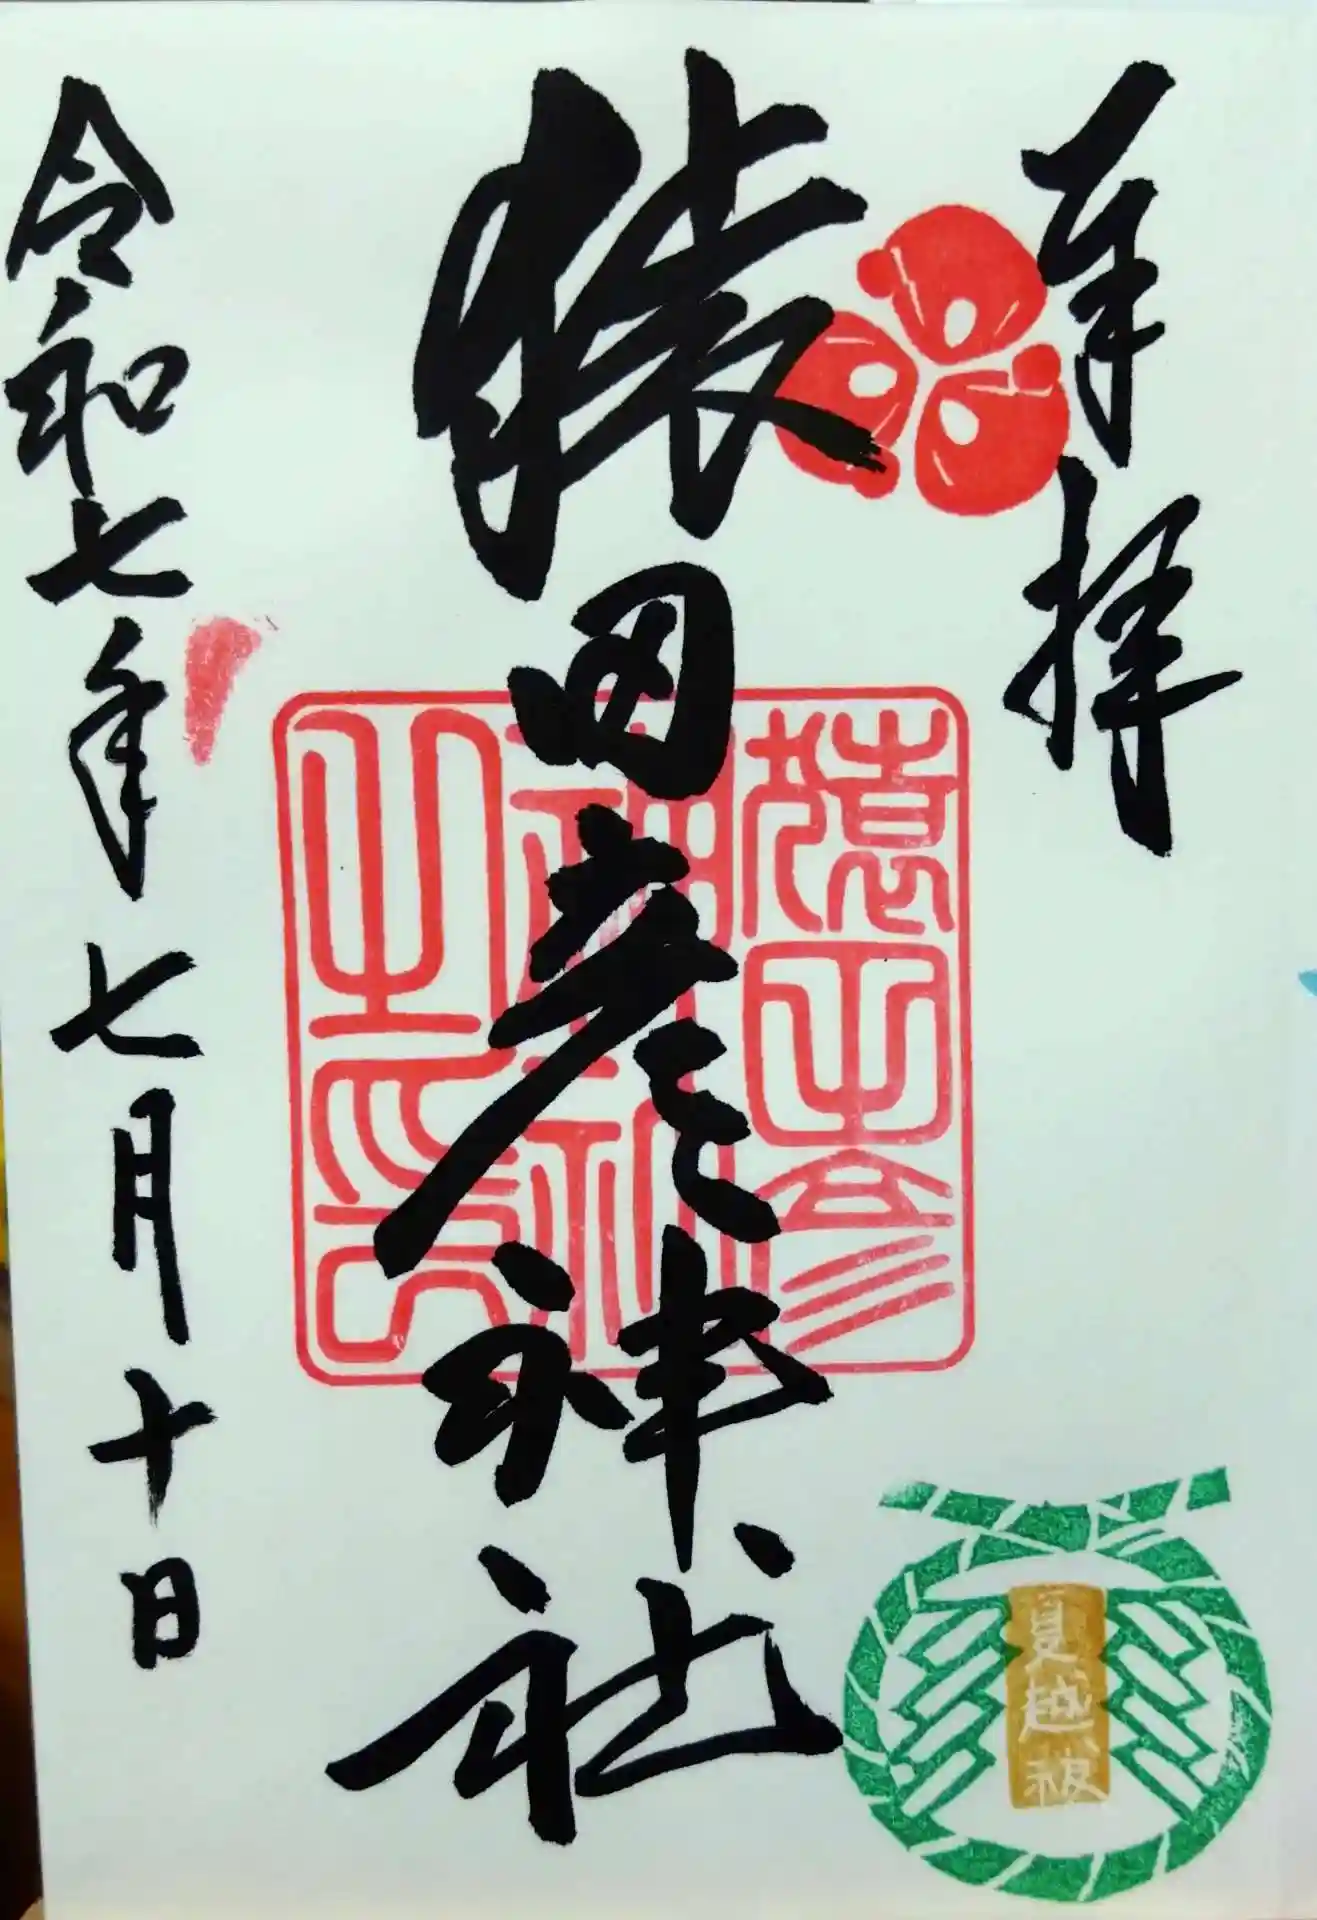 奉拝
猿田彦神社
猿田彦
神社
之印
夏越祓
令和七年七月十日